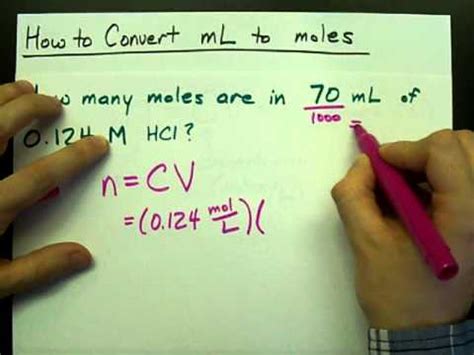 How to Convert mL to moles
How many moles are in 70/1000 = mL of
0.124 M HCl?
n = CV
= (0.124 mol/L)(